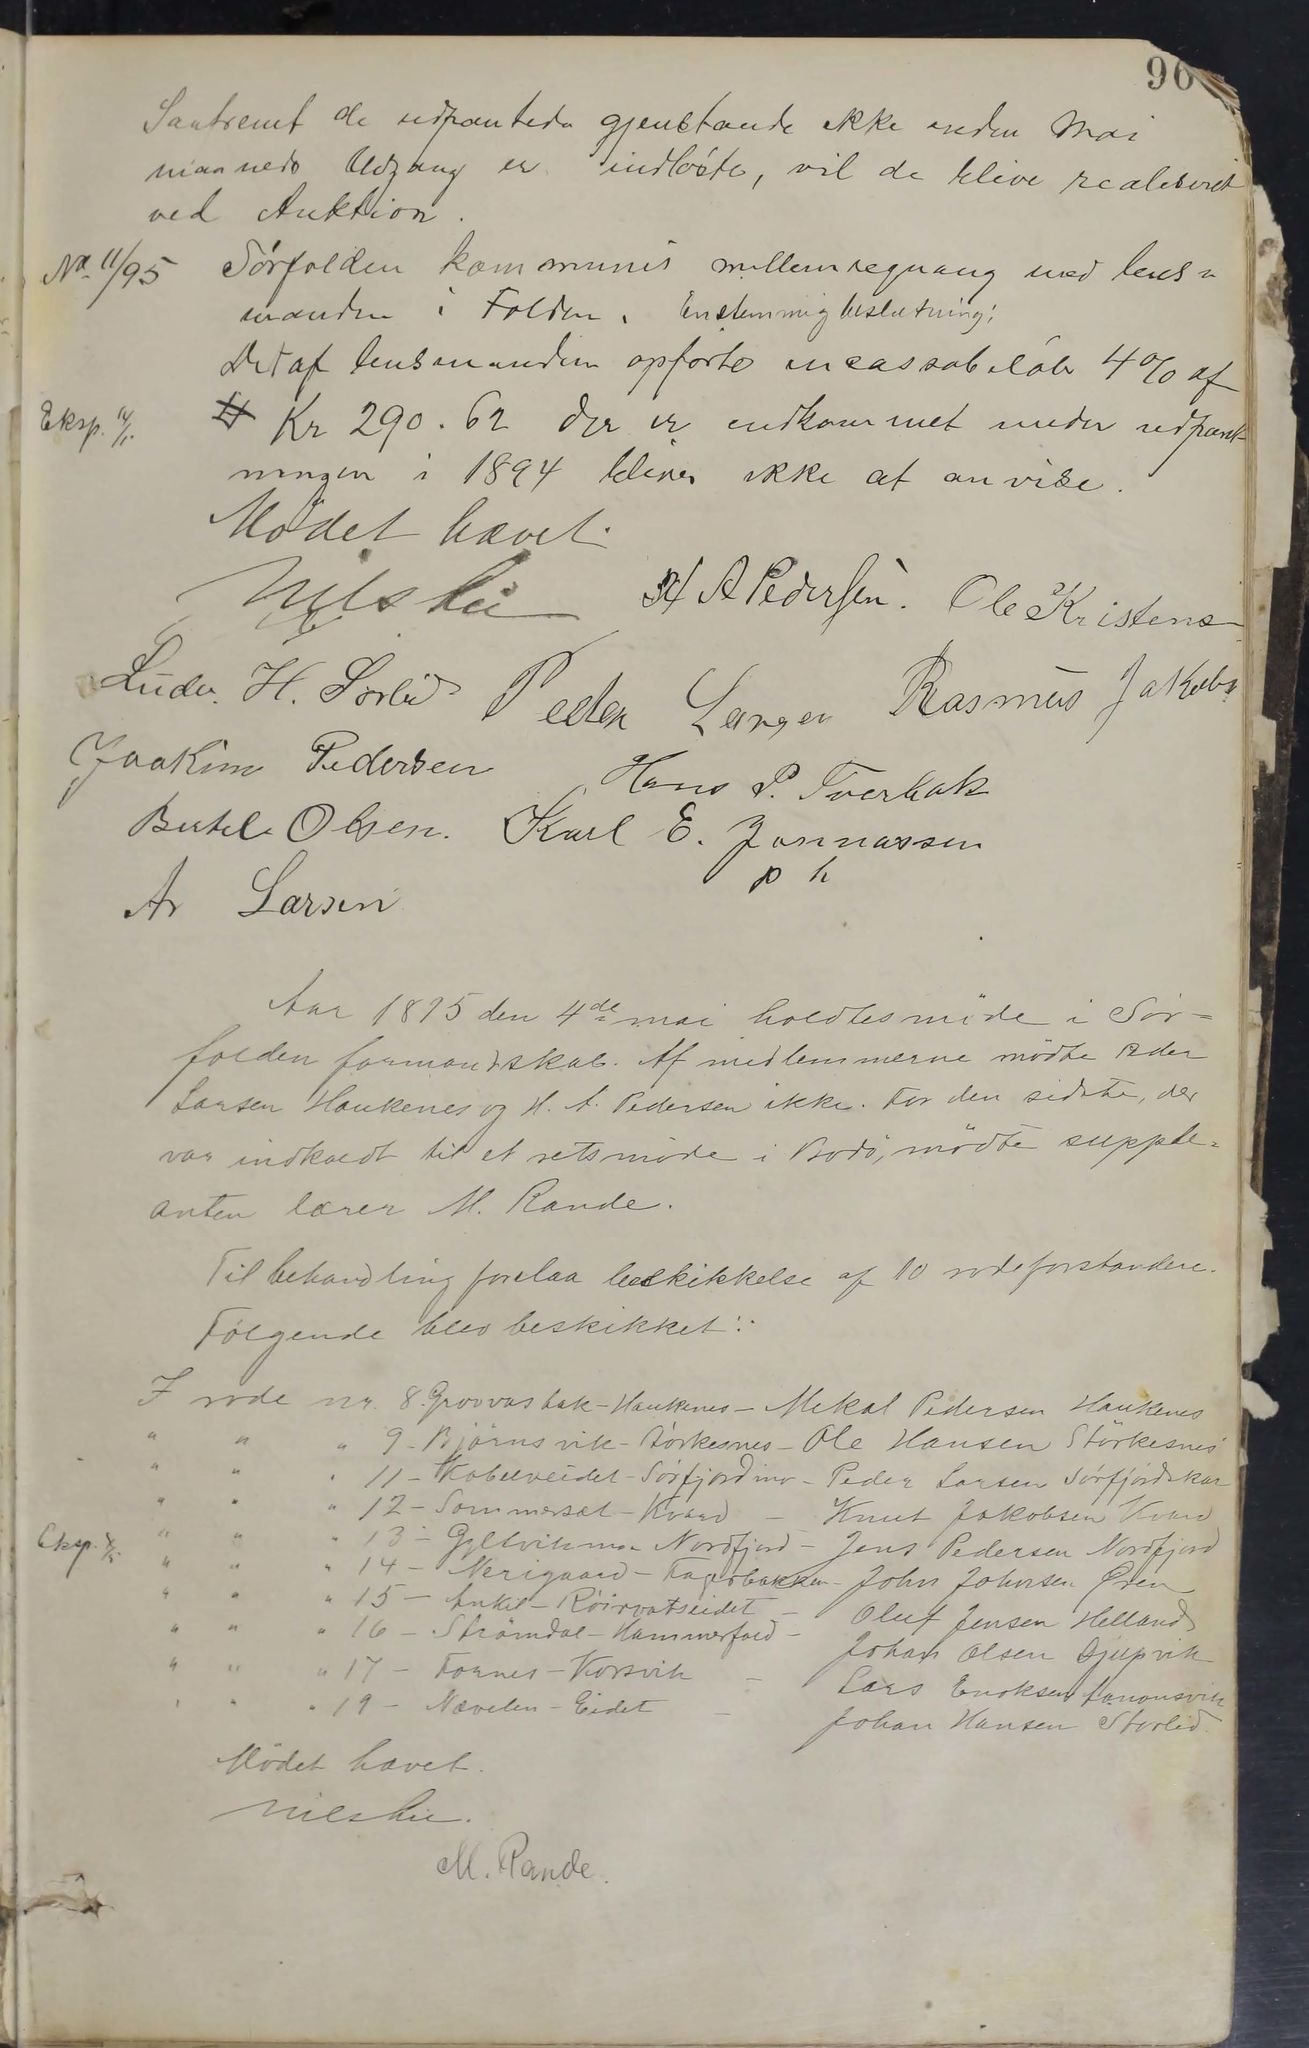 96
Saafremt de udpantede gjenstande ikke inden Mai
maaneds Udgang er indløste, vil de blive realiseret
ved Auktion.
No 11/95 Sørfolden kommunes mellemregnang med lens=
manden i Folden. Enstemmig beslutning:
Det af lensmanden opførte incassobeløb 4% af
Eksp. Kr 290.62 der er indkommet under udpant-
ningen i 1894 blives ikke at anvise.
Mødet hævet.
Nils Lie H A Pedersen. Ole Kristens
Luder. H. Sørlid Peder Larsen Rasmus Jakobs
Joakim Pedersen Hans P. Tverbak
Bertel Olsen. Karl E. Jonnassen
p h
Ar Larsen
Aar 1895 den 4de mai holdtes møde i Sør=
folden formandskab. Af medlemmerne mødte Peder
Larsen Haukenes og H. A. Pedersen ikke. For den sidste, der
var indkaldt til et retsmøde i Bodø, mødte supple=
anten lærer M. Rande.
Til behandling forelaa beskikkelse af 10 rodeforstandere.
Følgende blev beskikket:
I rode nr. 8. Grovvasbak - Haukenes - Mekal Pedersen Haukenes
" " " 9 - Bjørnsvik - Størkesnes - Ole Hansen Størkesnes
" " " 11 - Kobbelveidet - Sørfjordmo - Peder Larsen Sørfjordskar
" " " 12 - Sommerset - Kvard - Knut Jakobsen Kvard
Eksp. " " " 13 - Gyltvikmo Nordfjord - Jens Pedersen Nordfjord
" " " 14 - Nerigaard - Fagerbakken - John Johnsen Øren
" " " 15 - Ankil - Røirvatseidet - Oluf Jensen Helland
" " " 16 - Strømdal - Hammerfald - Johan Olsen Djupvik
" " " 17 - Fornes - Korsvik - Lars Enoksen Aanonsvik
" " " 19 - Nævelen - Eidet - Johan Hansen Storlid.
Mødet hævet.
Nils Lie.
M. Rande.